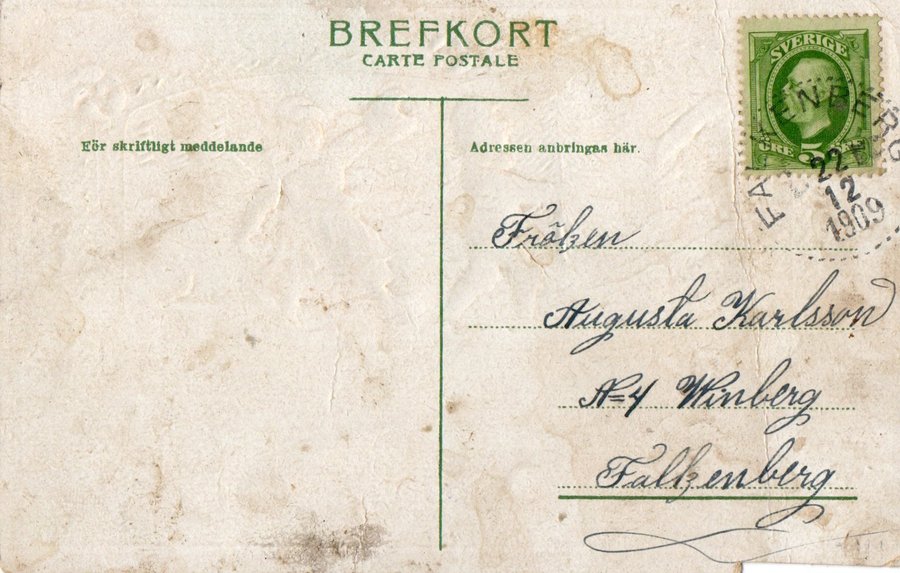 BREFKORT
CARTE POSTALE
SVERIGE
ÖRE 5 ÖRE
FALKENBERG
22
12
1909
För skriftligt meddelande
Adressen anbringas här.
Fröken
Augusta Karlsson
N=4 Winberg
Falkenberg